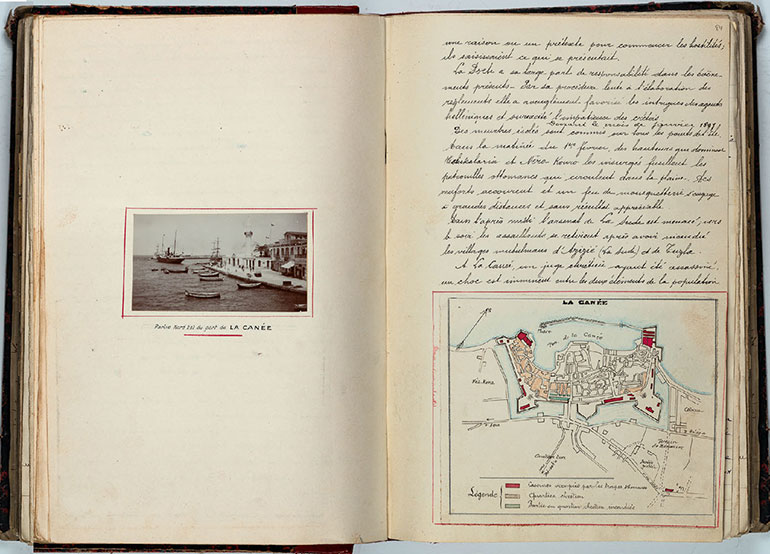 Partie Nord Est du port de LA CANÉE
84
une raison ou un prétexte pour commencer les hostilités,
ils saisissaient ce qui se présentait.
La Porte a sa large part de responsabilité dans les évène-
ments présents - Par sa procédure lente à l'élaboration des
règlements elle a aveuglement favorisé les intrigues des agents
helléniques et surexcité l'impatience des crétois
Durant le mois de Janvier 1897
Des meurtres isolés sont commis sur tous les points de l'île
Dans la matinée du 1er février, des hauteurs que dominent
et Néro-Kouro les insurgés fusillent les
patrouilles ottomanes qui circulent dans la plaine. Des
renforts accourent et un feu de mousqueterie s'engage
à grandes distances et sans résultat appréciable.
Dans l'après midi l'arsenal de La Sude est menacé; vers
le soir les assaillants se retirent après avoir incendié
les villages musulmans d'Azizié (La Sude) et de Tuzla.
A La Canée, un juge chrétien ayant été assassiné,
un choc est imminent entre les deux éléments de la population
LA CANÉE
Phare
Port de la Canée
Légende
Casernes occupées par les troupes ottomanes
Quartier chrétien
Partie du quartier chrétien incendiée